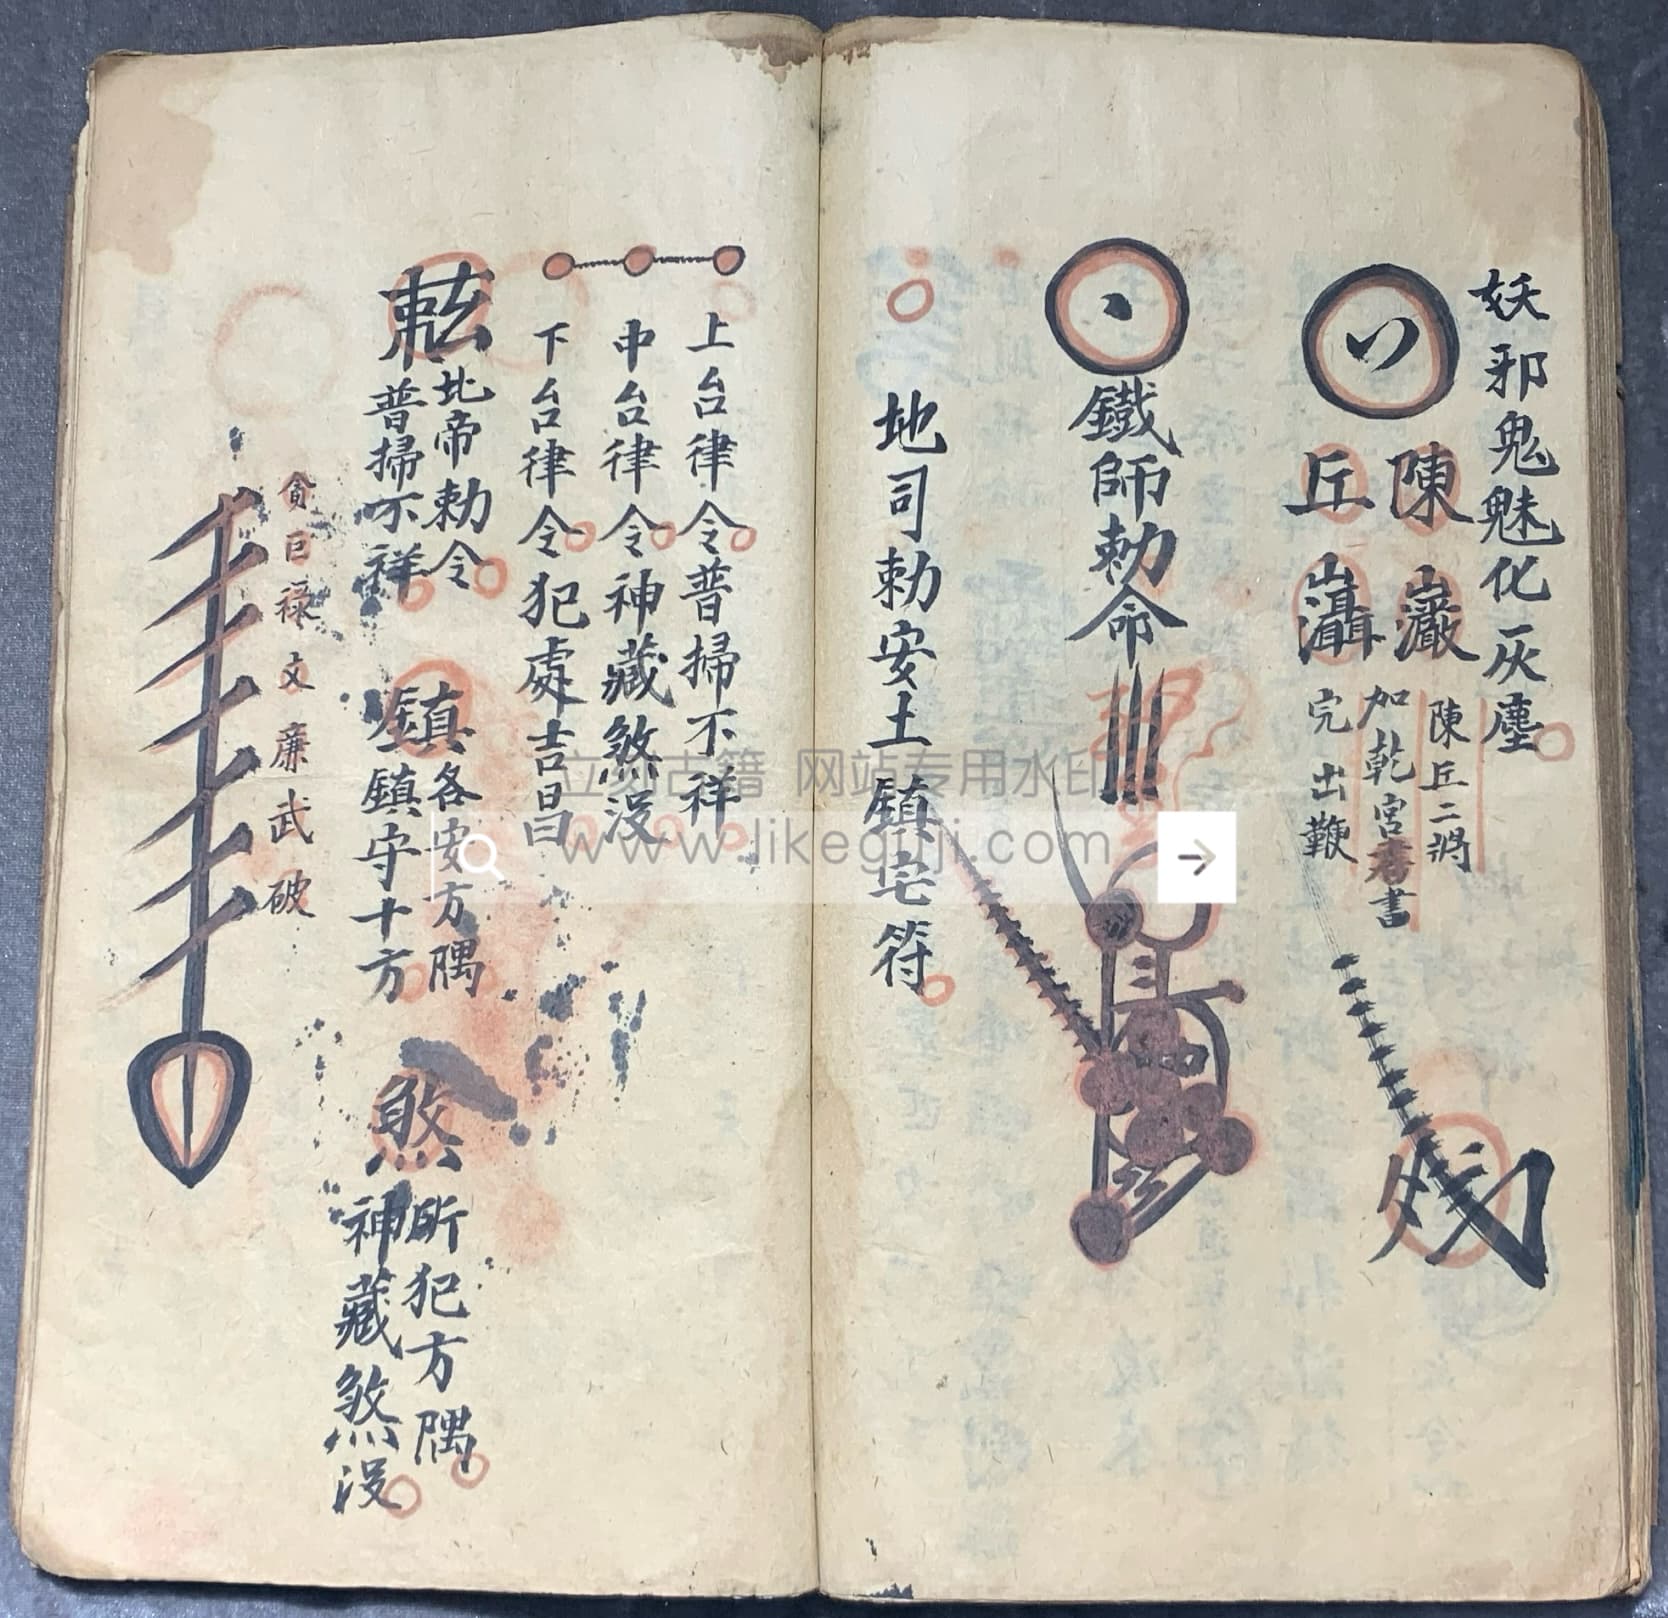 妖邪鬼魅化灰塵
陳
陳丘二將
加乾宮書
丘
完出鞭
鐵師勅命
地司勅安土鎮宅符
上台律令普掃不祥
中台律令神藏煞沒
下台律令犯處吉昌
北帝勅令
普掃不祥
鎮各安方隅
鎮守十方
煞所犯方隅
神藏煞沒
貪巨祿文廉武破
立刻古籍 网站专用水印
www.likeguji.com